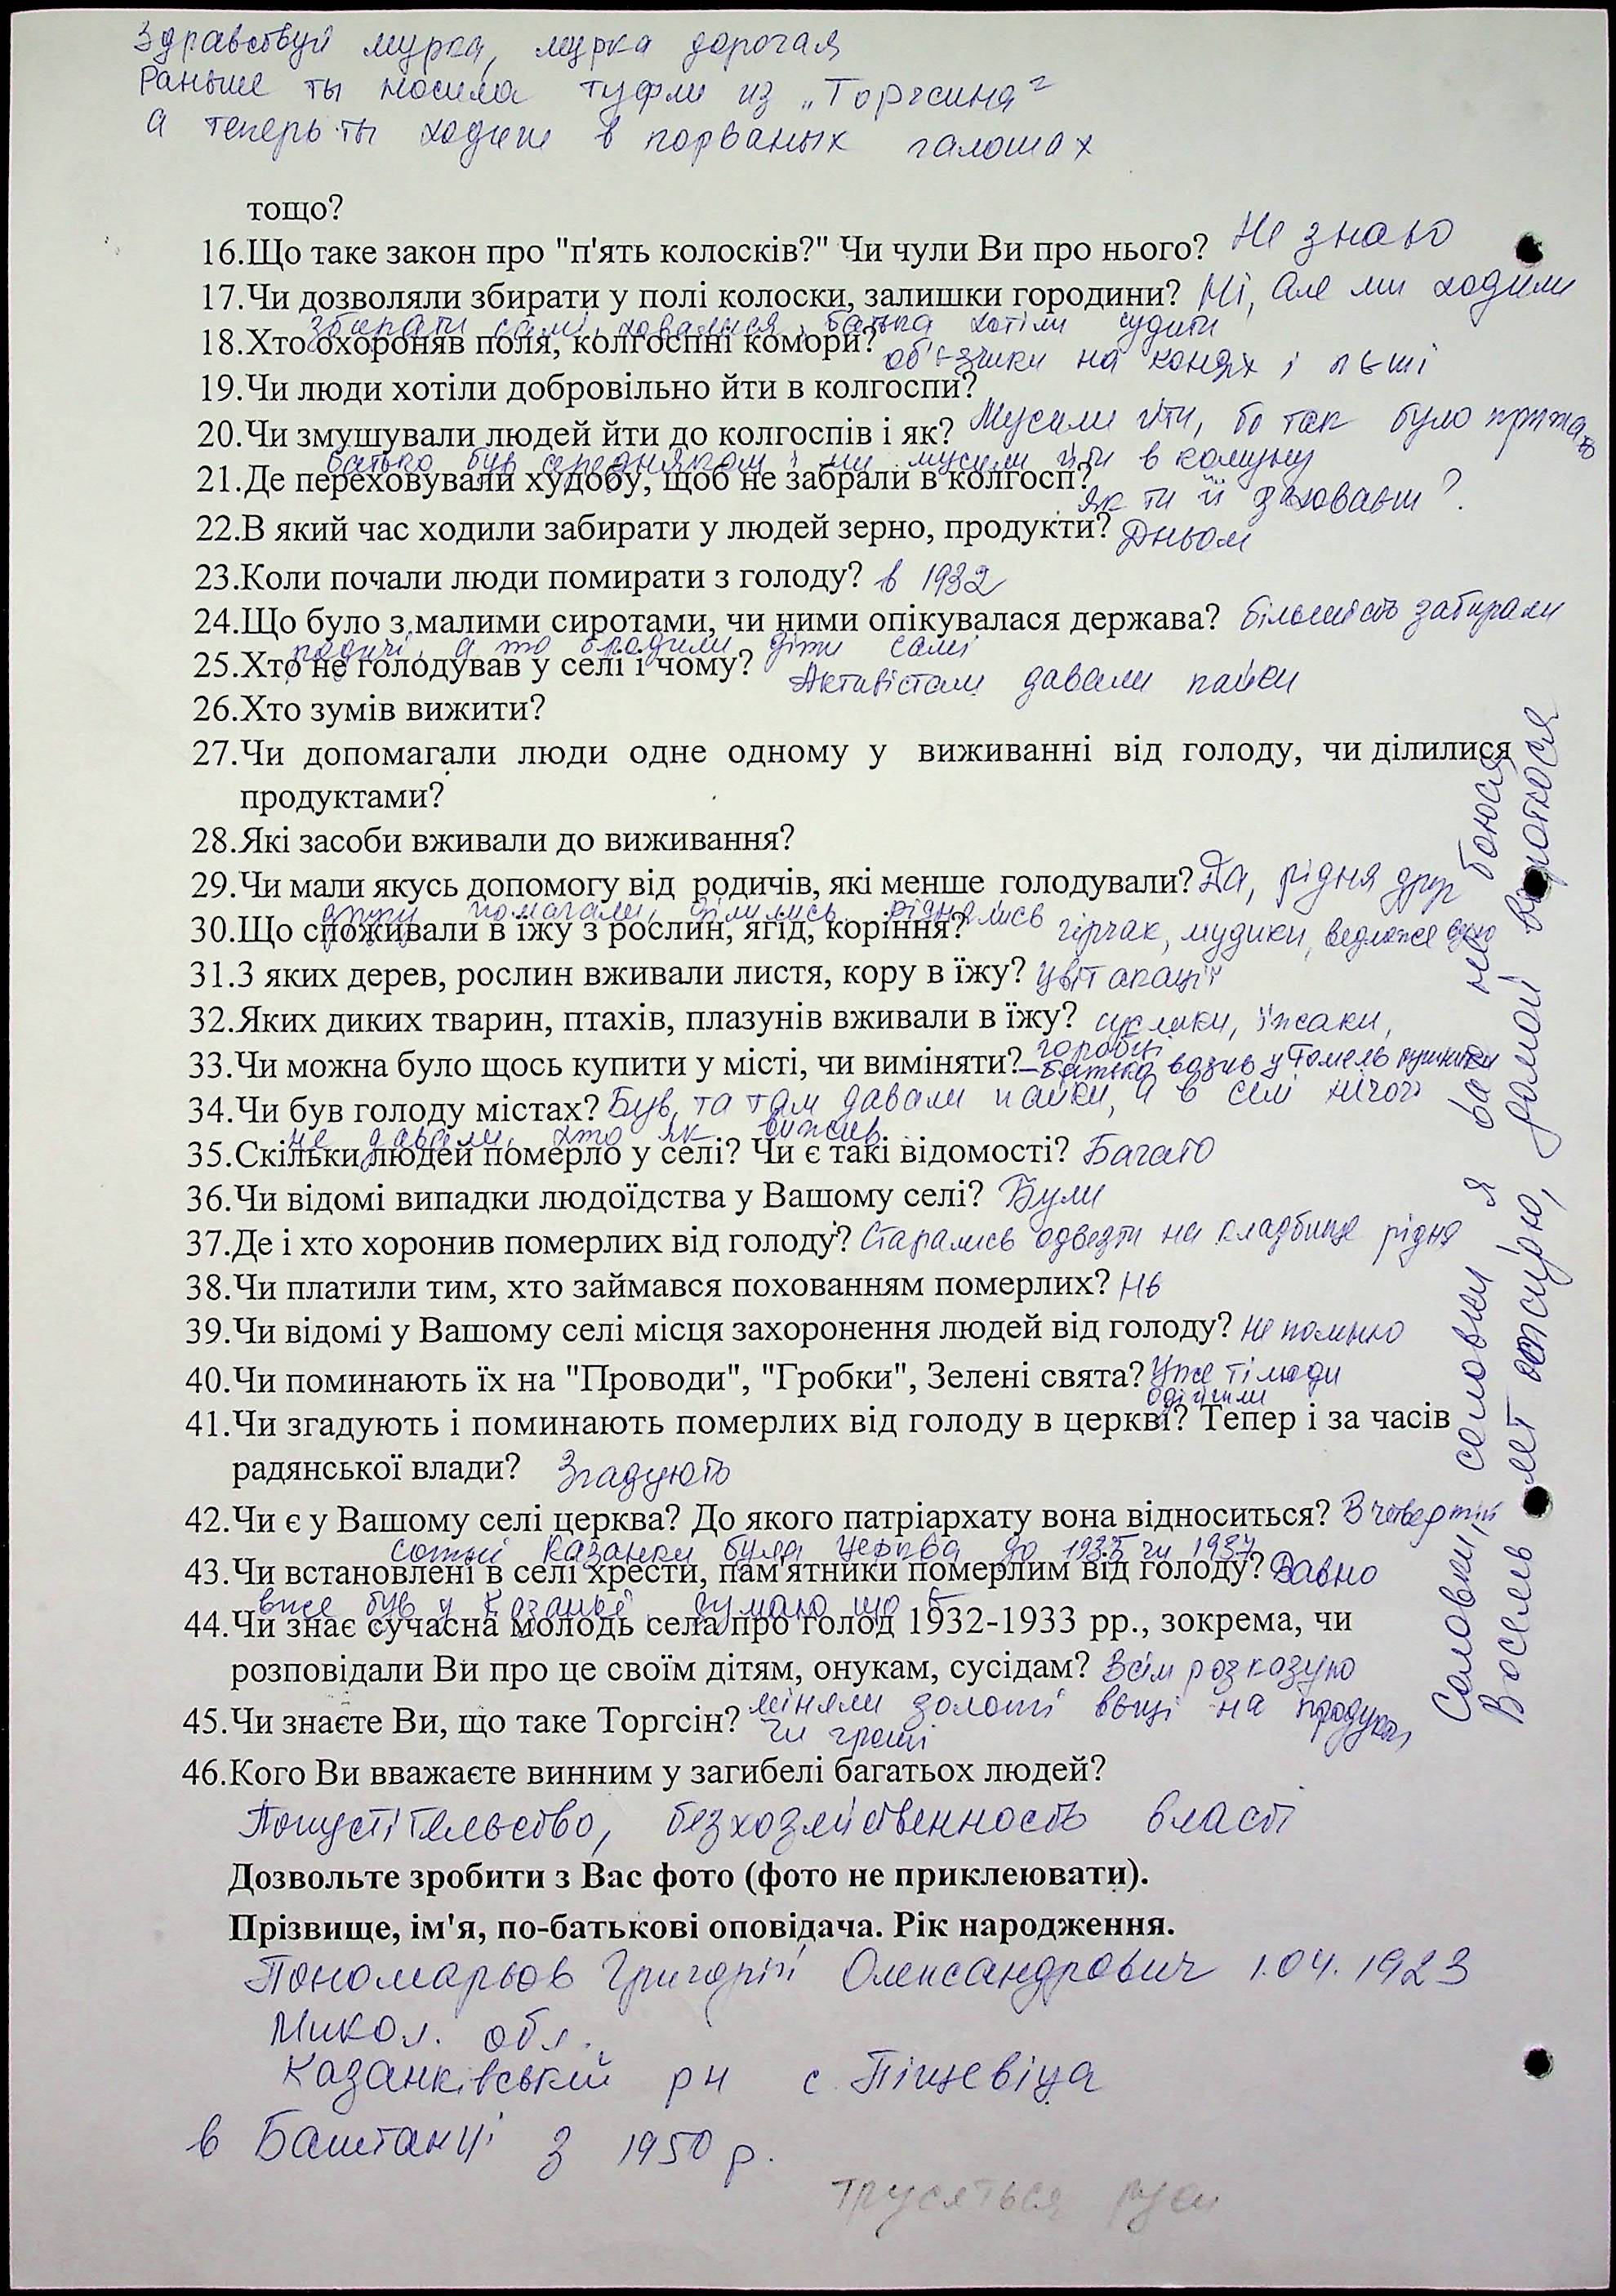 Здравствуй мурка, мурка дорогая
Раньше ты носила туфли из „Торгсина"
а теперь ты ходиш в порваных галошах
тощо?
16.Що таке закон про "п'ять колосків?" Чи чули Ви про нього? Не знаю
17.Чи дозволяли збирати у полі колоски, залишки городини? Ні, але ми ходили
збирати самі, ховалися, батька хотіли судити
18.Хто охороняв поля, колгоспні комори? об'єзчики на конях і піші
19.Чи люди хотіли добровільно йти в колгоспи?
20.Чи змушували людей йти до колгоспів і як? Мусили іти, бо так було
батько був середняком і ми мусили йти в комуну
21.Де переховували худобу, щоб не забрали в колгосп? як ти її заховаєш?
22.В який час ходили забирати у людей зерно, продукти? Дньом
23.Коли почали люди помирати з голоду? в 1932
24.Що було з малими сиротами, чи ними опікувалася держава? більшість забирали
родичі, а то бродили діти самі
25.Хто не голодував у селі і чому? Активістам давали пайки
26.Хто зумів вижити?
27.Чи допомагали люди одне одному у виживанні від голоду, чи ділилися
продуктами?
28.Які засоби вживали до виживання?
29.Чи мали якусь допомогу від родичів, які менше голодували? Да, рідня друг
другу помагали, ділились
30.Що споживали в їжу з рослин, ягід, коріння? гірчак, мудики,
31.З яких дерев, рослин вживали листя, кору в їжу? цвіт акації
32.Яких диких тварин, птахів, плазунів вживали в їжу? суслики, їжаки,
горобці
33.Чи можна було щось купити у місті, чи виміняти? – Батько возив у Гомель
34.Чи був голоду містах? Був, та там давали пайки, а в селі нічого
не давали, хто як вижив
35.Скільки людей померло у селі? Чи є такі відомості? Багато
36.Чи відомі випадки людоїдства у Вашому селі? Були
37.Де і хто хоронив померлих від голоду? Старались одвезти на кладбище рідня
38.Чи платили тим, хто займався похованням померлих? Нє
39.Чи відомі у Вашому селі місця захоронення людей від голоду? Не помню
40.Чи поминають їх на "Проводи", "Гробки", Зелені свята? Уже ті люди
одійшли
41.Чи згадують і поминають померлих від голоду в церкві? Тепер і за часів
радянської влади? Згадують
42.Чи є у Вашому селі церква? До якого патріархату вона відноситься? В четвертій
сотні Казанки була церква до 1935 чи 1937
43.Чи встановлені в селі хрести, пам'ятники померлим від голоду? Давно
вже був у Казанкє, думаю що є
44.Чи знає сучасна молодь села про голод 1932-1933 рр., зокрема, чи
розповідали Ви про це своїм дітям, онукам, сусідам? Всім розказую
45.Чи знаєте Ви, що таке Торгсін? міняли золоті вещі на продукти
чи гроші
46.Кого Ви вважаєте винним у загибелі багатьох людей?
Попустітєльство, безхозяйственность власті
Дозвольте зробити з Вас фото (фото не приклеювати).
Прізвище, ім'я, по-батькові оповідача. Рік народження.
Пономарьов Григорій Олександрович 1.04.1923
Микол. обл.
Казанківський рн с. Піщевіца
в Баштанці з 1950 р.
трусяться руки
Соловки, соловки я вас не боюся
Восемь лет отсидю, домой воротюся